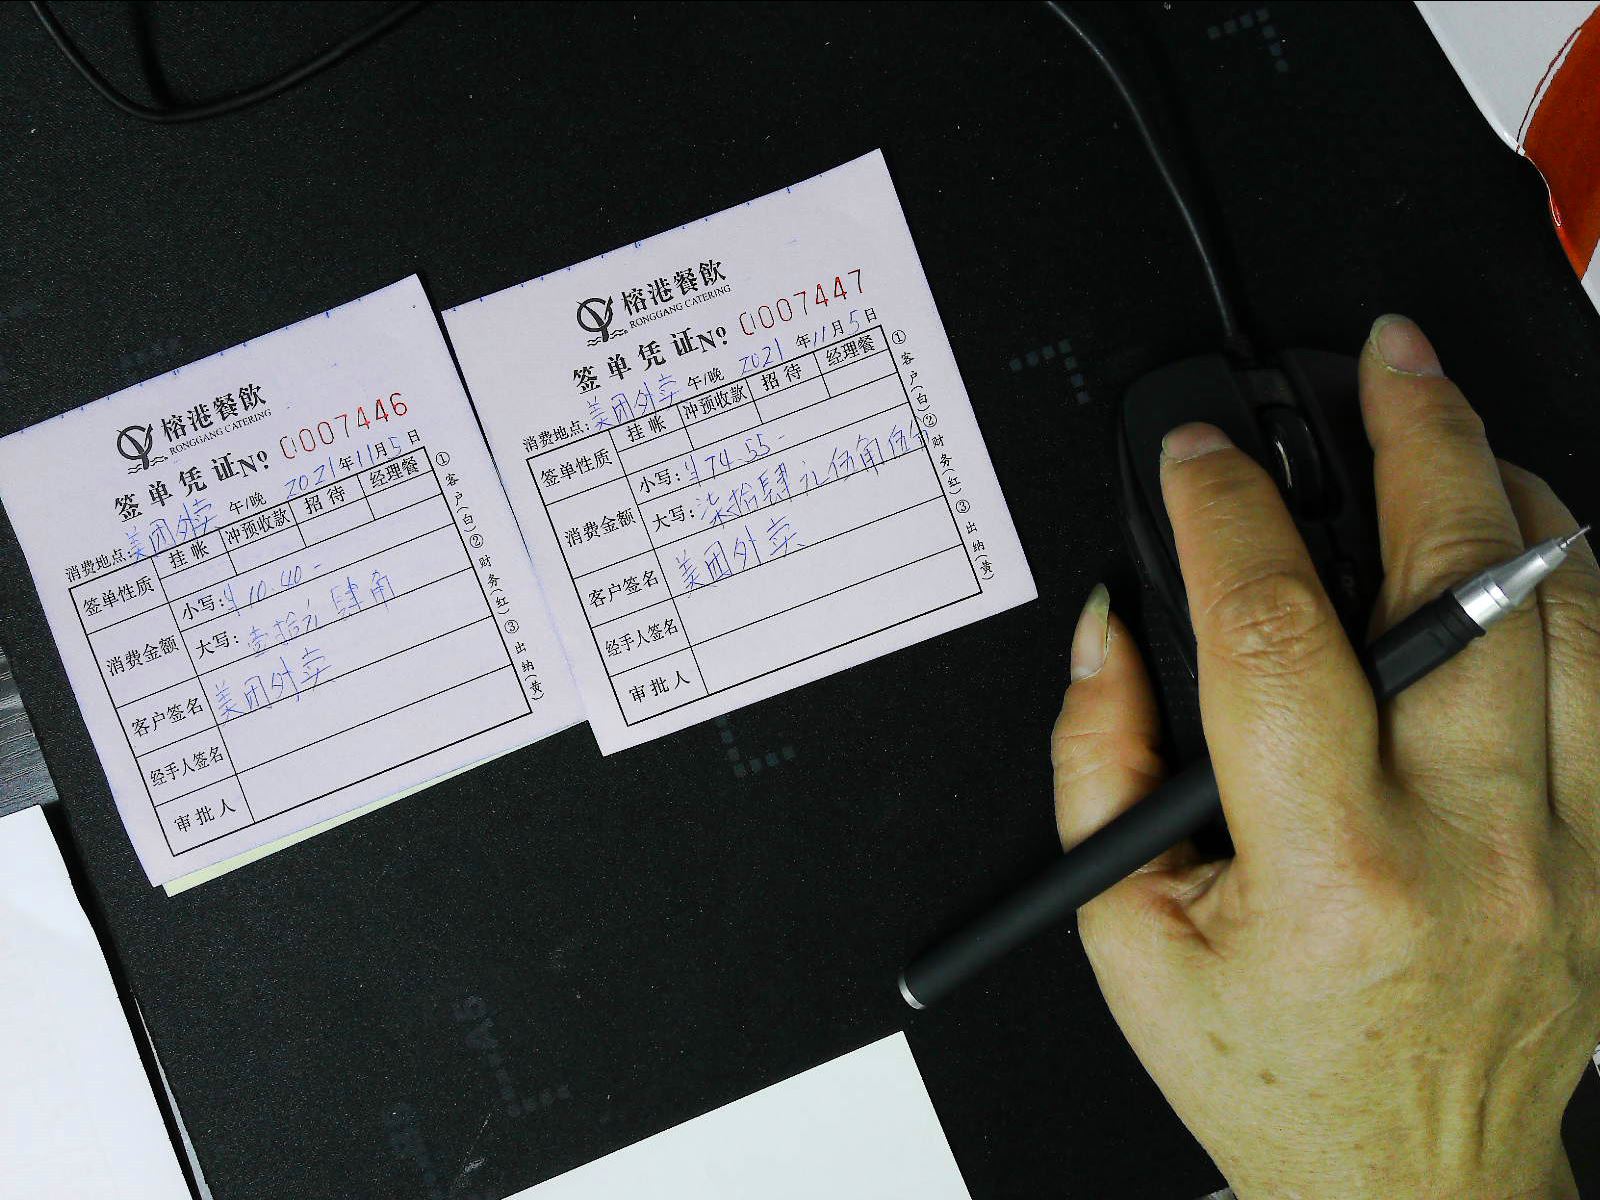 榕港餐飲
RONGGANG CATERING
签单凭证№ 0007446
消费地点：美团外卖 午/晚 2021年11月5日
签单性质 挂帐 冲预收款 招待 经理餐
消费金额 小写：¥10.40-
大写：壹拾元肆角
客户签名 美团外卖
经手人签名
审批人
①客户(白)②财务(红)③出纳(黄)
榕港餐飲
RONGGANG CATERING
签单凭证№ 0007447
消费地点：美团外卖 午/晚 2021年11月5日
签单性质 挂帐 冲预收款 招待 经理餐
消费金额 小写：¥74.55-
大写：柒拾肆元伍角伍分
客户签名 美团外卖
经手人签名
审批人
①客户(白)②财务(红)③出纳(黄)